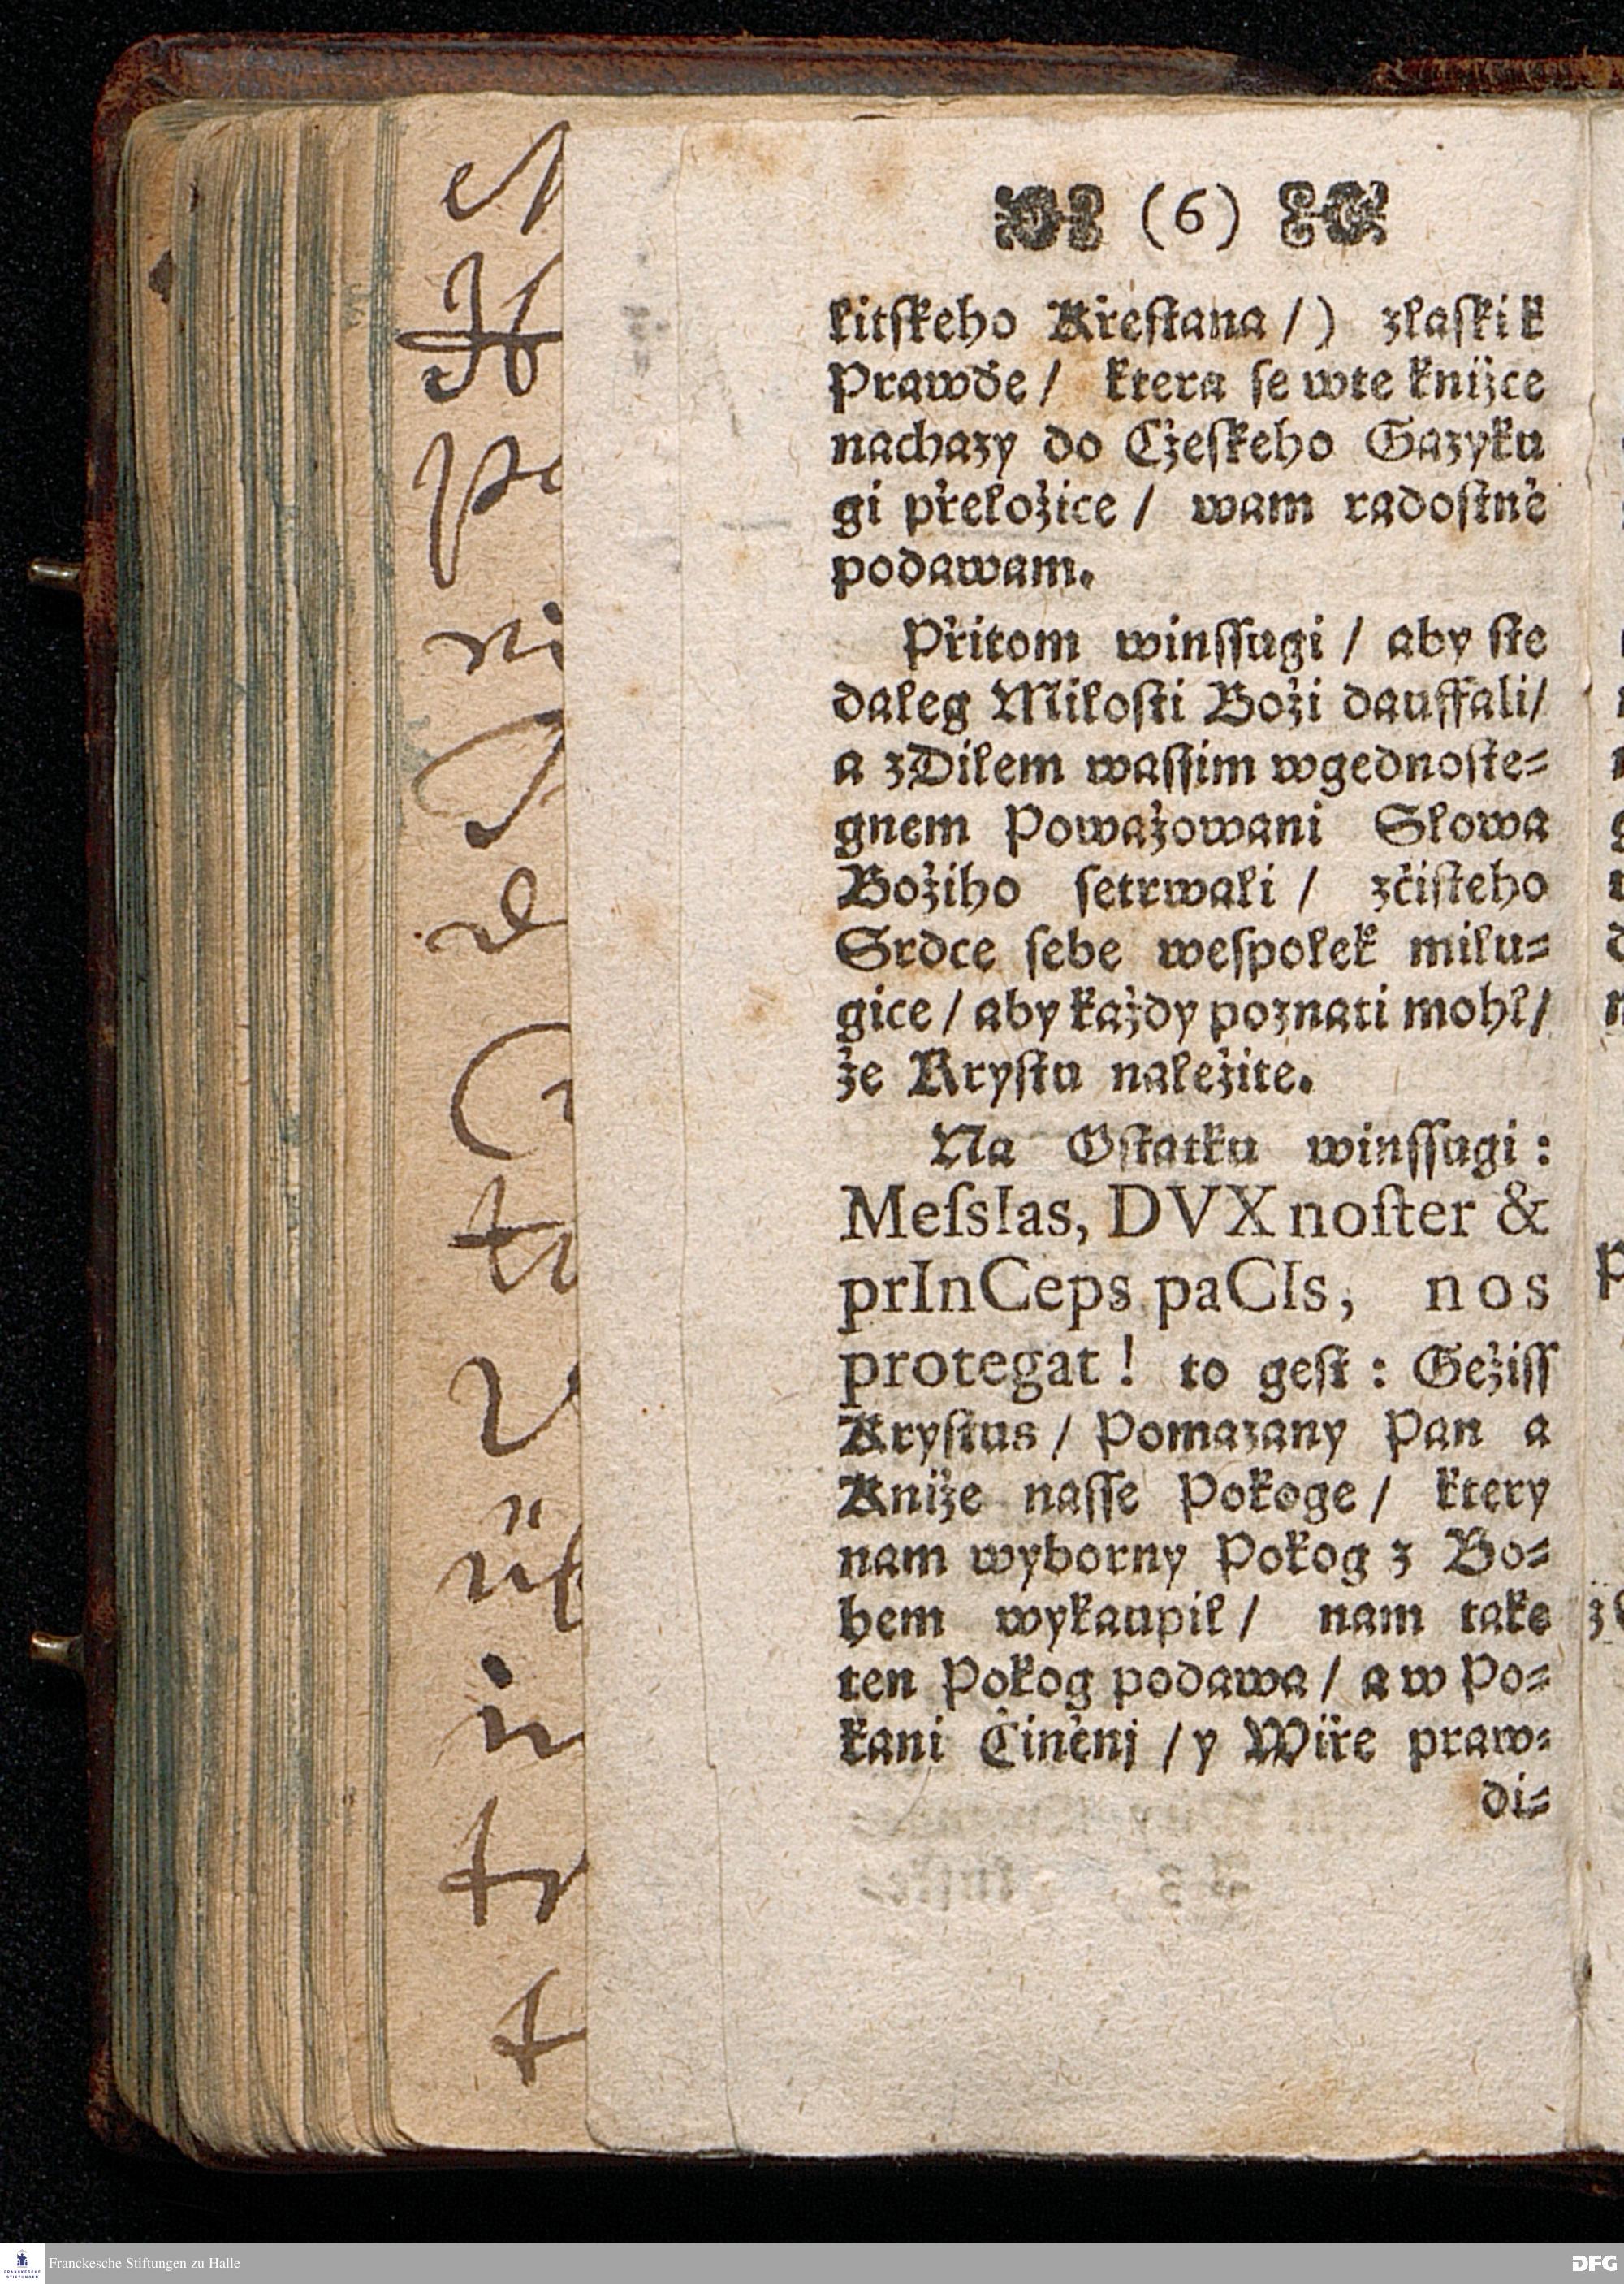 (6)
kitſkeho Křeſtana /) zlaſki k
Prawďe / ktera ſe wte knižce
nachazy do Cžeſkeho Gazyku
gi přeložice / wam radoſtně
podawam.
Přitom winſſugi / aby ſte
daleg Miloſti Boži dauffali /
a zDilem waſſim wgednoſte⸗
gnem Powažowani Slowa
Božiho ſetrwali / zčiſteho
Srdce ſebe weſpolek milu⸗
gice / aby každy poznati mohl /
že Kryſtu naležite.
Na Oſtatku winſſugi :
MeſsIas, DVX noſter &
prInCeps paCIs, nos
protegat ! to geſt : Gežiſſ
Kryſtus / Pomazany Pan a
Kniže naſſe Pokoge / ktery
nam wyborny Pokog z Bo⸗
hem wykaupil / nam take
ten Pokog podawa / a w Po⸗
kani Činěnj / y Wiře praw⸗
di⸗
Franckesche Stiftungen zu Halle
DFG